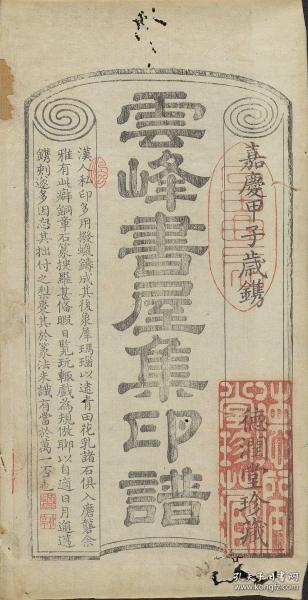 嘉慶甲子歲鐫
德潤堂珍藏
雲峰書屋集印譜
漢人私印多用撥蠟鑄成其後象犀瑪瑙以逮青田花乳諸石俱入磨礱余
雅有此癖銅章石篆搜羅甚偹暇日覧玩輒戲為規倣聊以自適日月遄邁
鐫刻遂多因忘其拙付之梨棗其於篆法未識有當於萬一否也
孔夫子旧书网